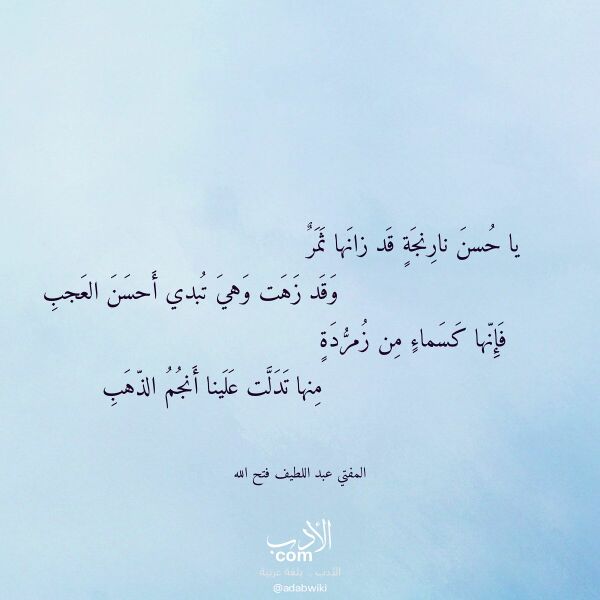 يا حُسنَ نارِنجَةٍ قَد زانَها ثَمَرٌ
وَقَد زَهَت وَهيَ تُبدي أَحسَنَ العَجبِ
فَإِنّها كَسَماءٍ مِن زُمرُّدَةٍ
مِنها تَدَلَّت عَلَينا أَنجُمُ الذّهَبِ
المفتي عبد اللطيف فتح الله
الأدب
com
الأدب .. بلغة عربية
@adabwiki